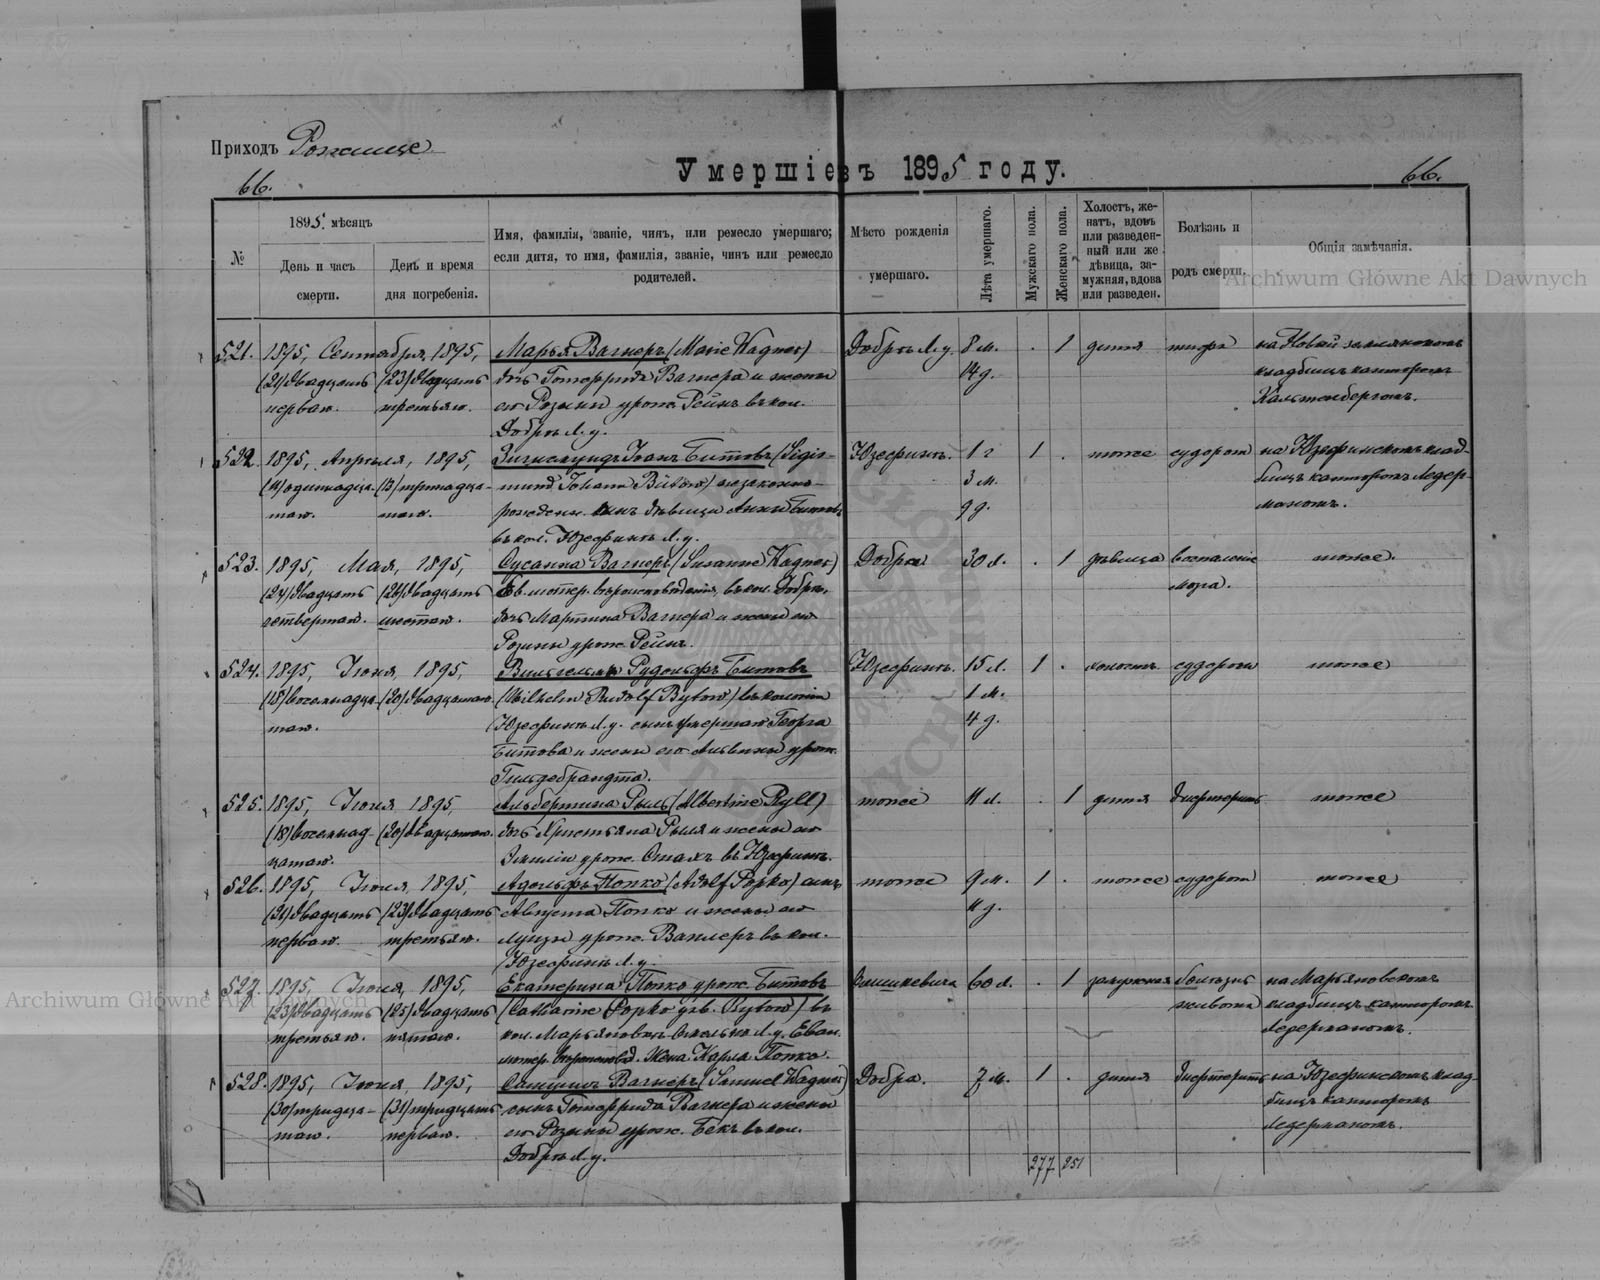 Приходъ Рожище
Умершіевъ 1895 году.
66.
66.
№
1895 мѣсяцъ
День и часъ
смерти.
День и время
дня погребенія.
Имя, фамилія, званіе, чинъ, или ремесло умершаго;
если дитя, то имя, фамилія, званіе, чинъ или ремесло
родителей.
Мѣсто рожденія
умершаго.
Лѣта умершаго.
Мужскаго пола.
Женскаго пола.
Холостъ, же-
натъ, вдовъ
или разведен-
ный или же
дѣвица, за-
мужняя, вдова
или разведен.
Болѣзнь и
родъ смерти.
Общія замѣчанія.
Archiwum Główne Akt Dawnych
521. 1895, Сентября, 1895, Марья Вагнеръ (Marie Wagner) Добрѣ Л.у. 8 м. . 1 дитя тифъ на Новой
(21) двадцать (23) двадцать дочь Готфрида Вагнера и жены 14 д. кладбищѣ канторомъ
первого. третьяго. его Розины урож. Рейнъ въ кол. Кальтенбергомъ.
Добрѣ Л.у.
522. 1895, Апрѣля, 1895, Зигисмундъ Іоанъ Битовъ (Sigis- Юзефинъ. 1 г 1 . тоже судороги на Юзефинскомъ клад-
(11) одинадца- (13) тринадца- mund Johann Bütow) незаконно- 3 м. бищѣ канторомъ Ледер-
таго. таго. рожденн. сынъ дѣвицы Анны Битовъ 9 д. маномъ.
въ кол. Юзефинъ Л.у.
523. 1895, Мая, 1895, Сусанна Вагнеръ (Susanne Wagner) Добра 30 л. . 1 дѣвица воспаленіе тоже.
(24) двадцать (26) двадцать Ев. лютер. вѣроисповѣданія, въ кол. Добра, мозга.
четвертаго. шестаго. дочь Мартина Вагнера и жены его
Розины урож. Рейнъ.
524. 1895, Іюня, 1895, Вильгельмъ Рудольфъ Битовъ Юзефинъ. 15 л. 1 . холостъ судороги тоже
(18) восемнадца- (20) двадцатаго. (Wilhelm Rudolf Bytow) въ колоніи 1 м.
таго. Юзефинъ Л.у. сынъ умершаго Георга 4 д.
Битова и жены его Альвины урож.
Гильдебрандта.
525. 1895, Іюня 1895, Альбертина Рыль (Albertine Ryll) тоже 11 л. . 1 дитя дифтеритъ тоже
(18) восемнад- (20) двадцатаго. дочь Христьяна Рыля и жены его
цатаго. Эмиліи урож. въ Юзефинъ.
526. 1895, Іюня, 1895, Адольфъ Попко (Adolf Popko) сынъ тоже 9 м. 1 . тоже судороги тоже
(21) двадцать (23) двадцать Августа Попко и жены его 11 д.
первого. третьяго. Луизы урож. въ кол.
Юзефинъ Л.у.
527. 1895, Іюня, 1895, Екатерина Попко урож. Битовъ 60 л. . 1 замужняя болѣзнь на Марьяновскомъ
(23) двадцать (25) двадцать (Catharine Popko geb. Bytow) въ живота кладбищѣ канторомъ
третьяго. пятаго. кол. Марьяновка Л.у. Еван. Ледерманомъ.
лютер. вѣроисповѣд. Жена Карла Попко.
528. 1895, Іюня, 1895, Самуилъ Вагнеръ (Samuel Wagner) Добра. 7 м. 1 . дитя дифтеритъ на Юзефинскомъ клад-
(30) тридца- (31) тридцать сынъ Готфрида Вагнера и жены бищѣ канторомъ
таго. первого. его Розины урож. Бекъ въ кол. Ледерманомъ.
Добрѣ Л.у.
277 251
Archiwum Główne Akt Dawnych